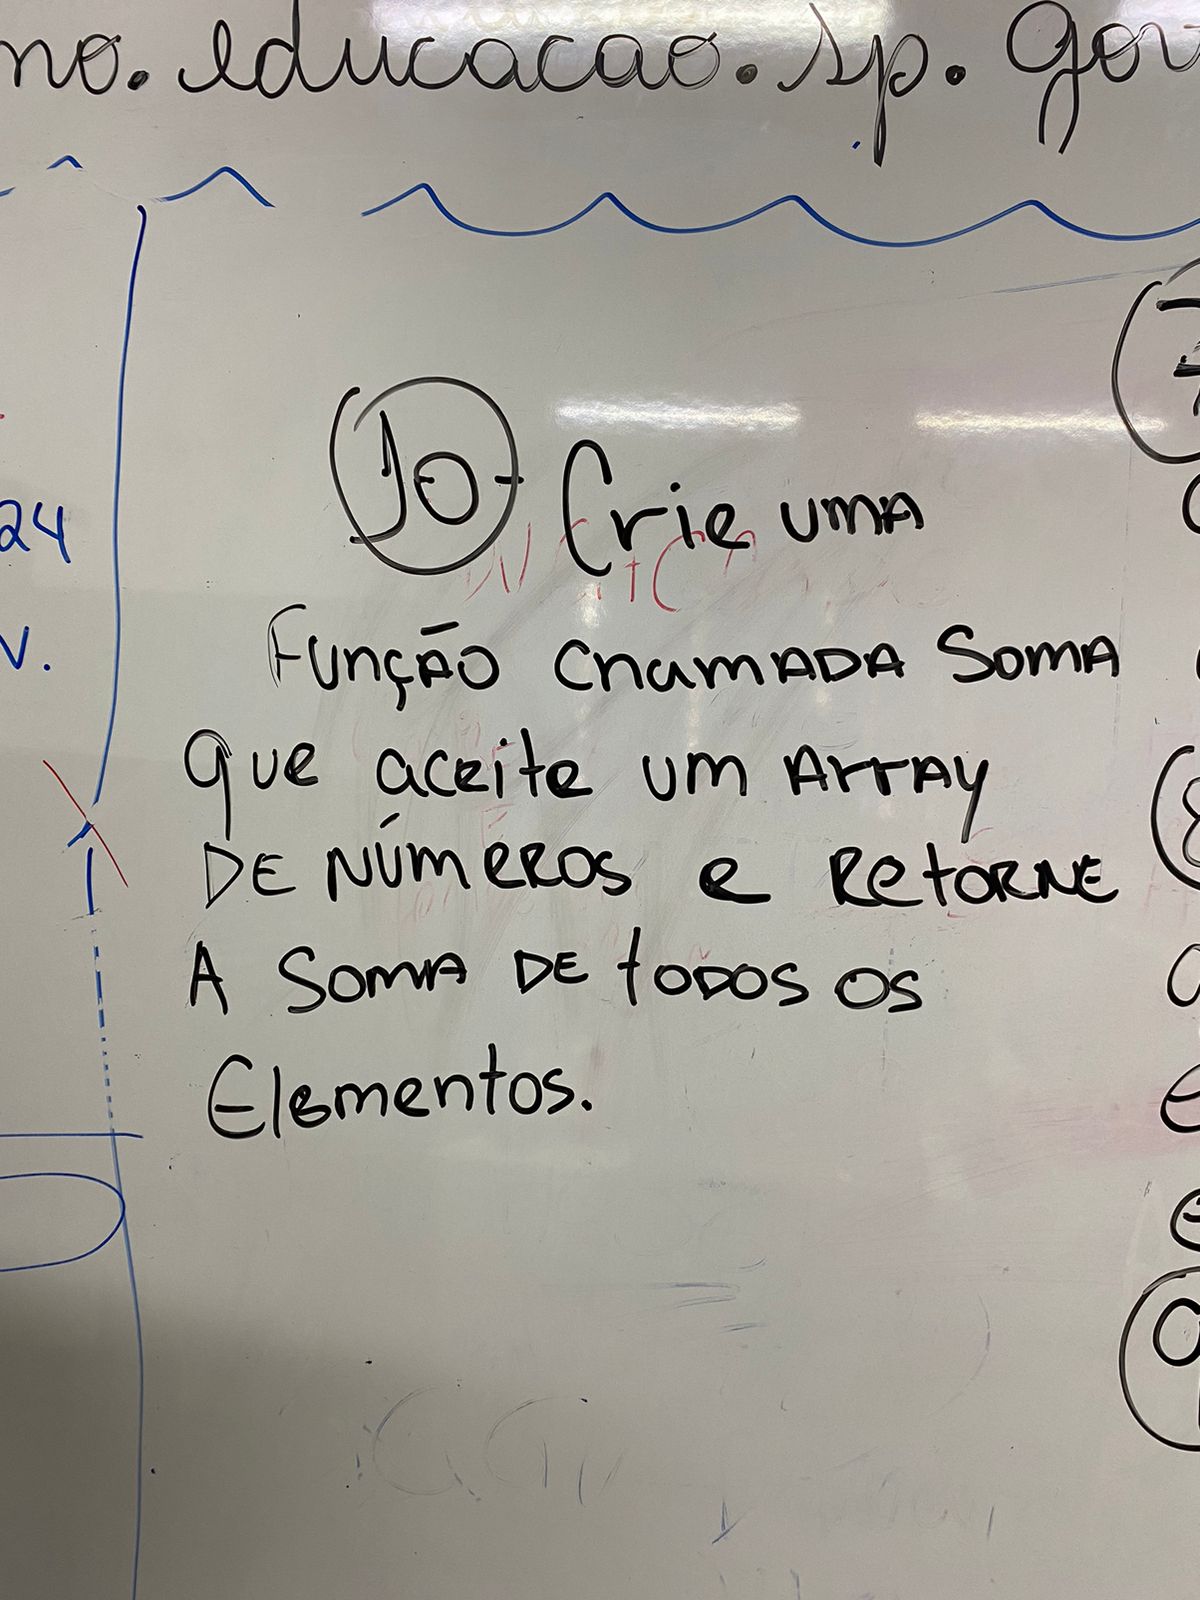 no.educacao.sp.gov
24
v.
10- Crie uma
Função chamada Soma
que aceite um Array
DE NÚMEROS e RetORNE
A SOMA DE tODOS OS
Elementos.
7
8
e
e
9